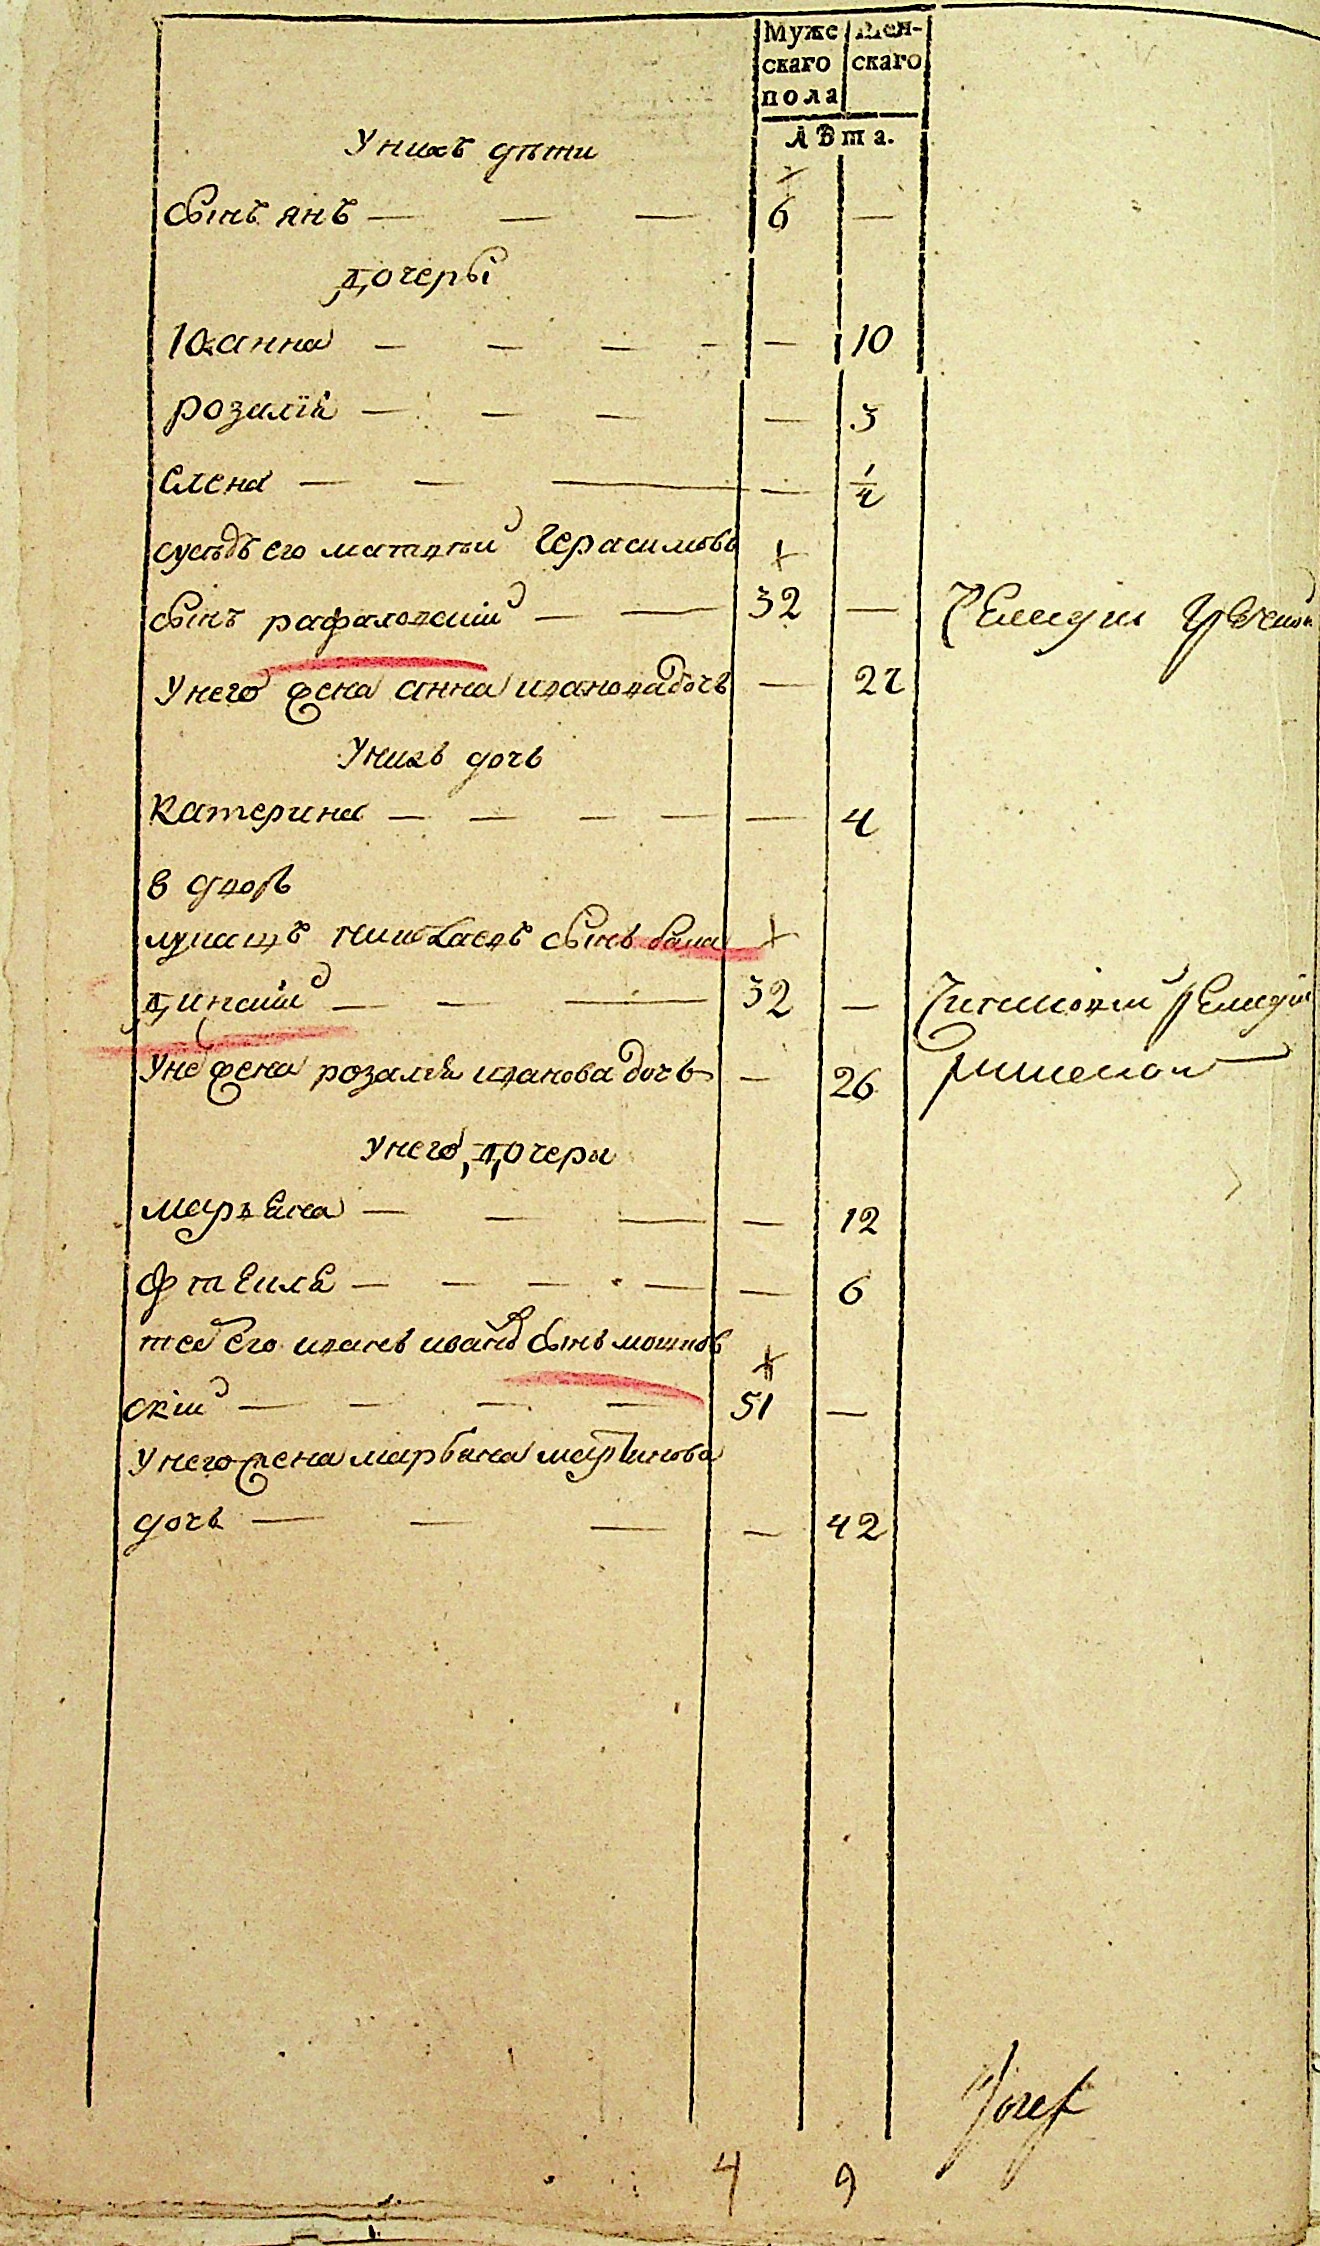 Муже Жен-
скаго скаго
пола
лѣта.
У нихъ дѣти
сынъ янъ — — — 6 —
дочеры
Юанна — — — — — 10
розалія — — — — 3
Елена — — — — 1/4
сусѣдъ его матвѣй Герасимовъ
сынъ рафаловскій — — 32 —
У него жена анна иванова дочь — 22
У нихъ дочь
Катерина — — — — — 4
в дворѣ
лукашъ сынъ бала
цинскій — — — 32 —
У не жена розалія иванова дочь — 26
У него дочеры
марьяна — — — — 12
— — — — — 6
тес его иванъ сынъ
скій — — — — 51 —
У него жена марьяна мартинова
дочь — — — — 42
Jozef
4 9